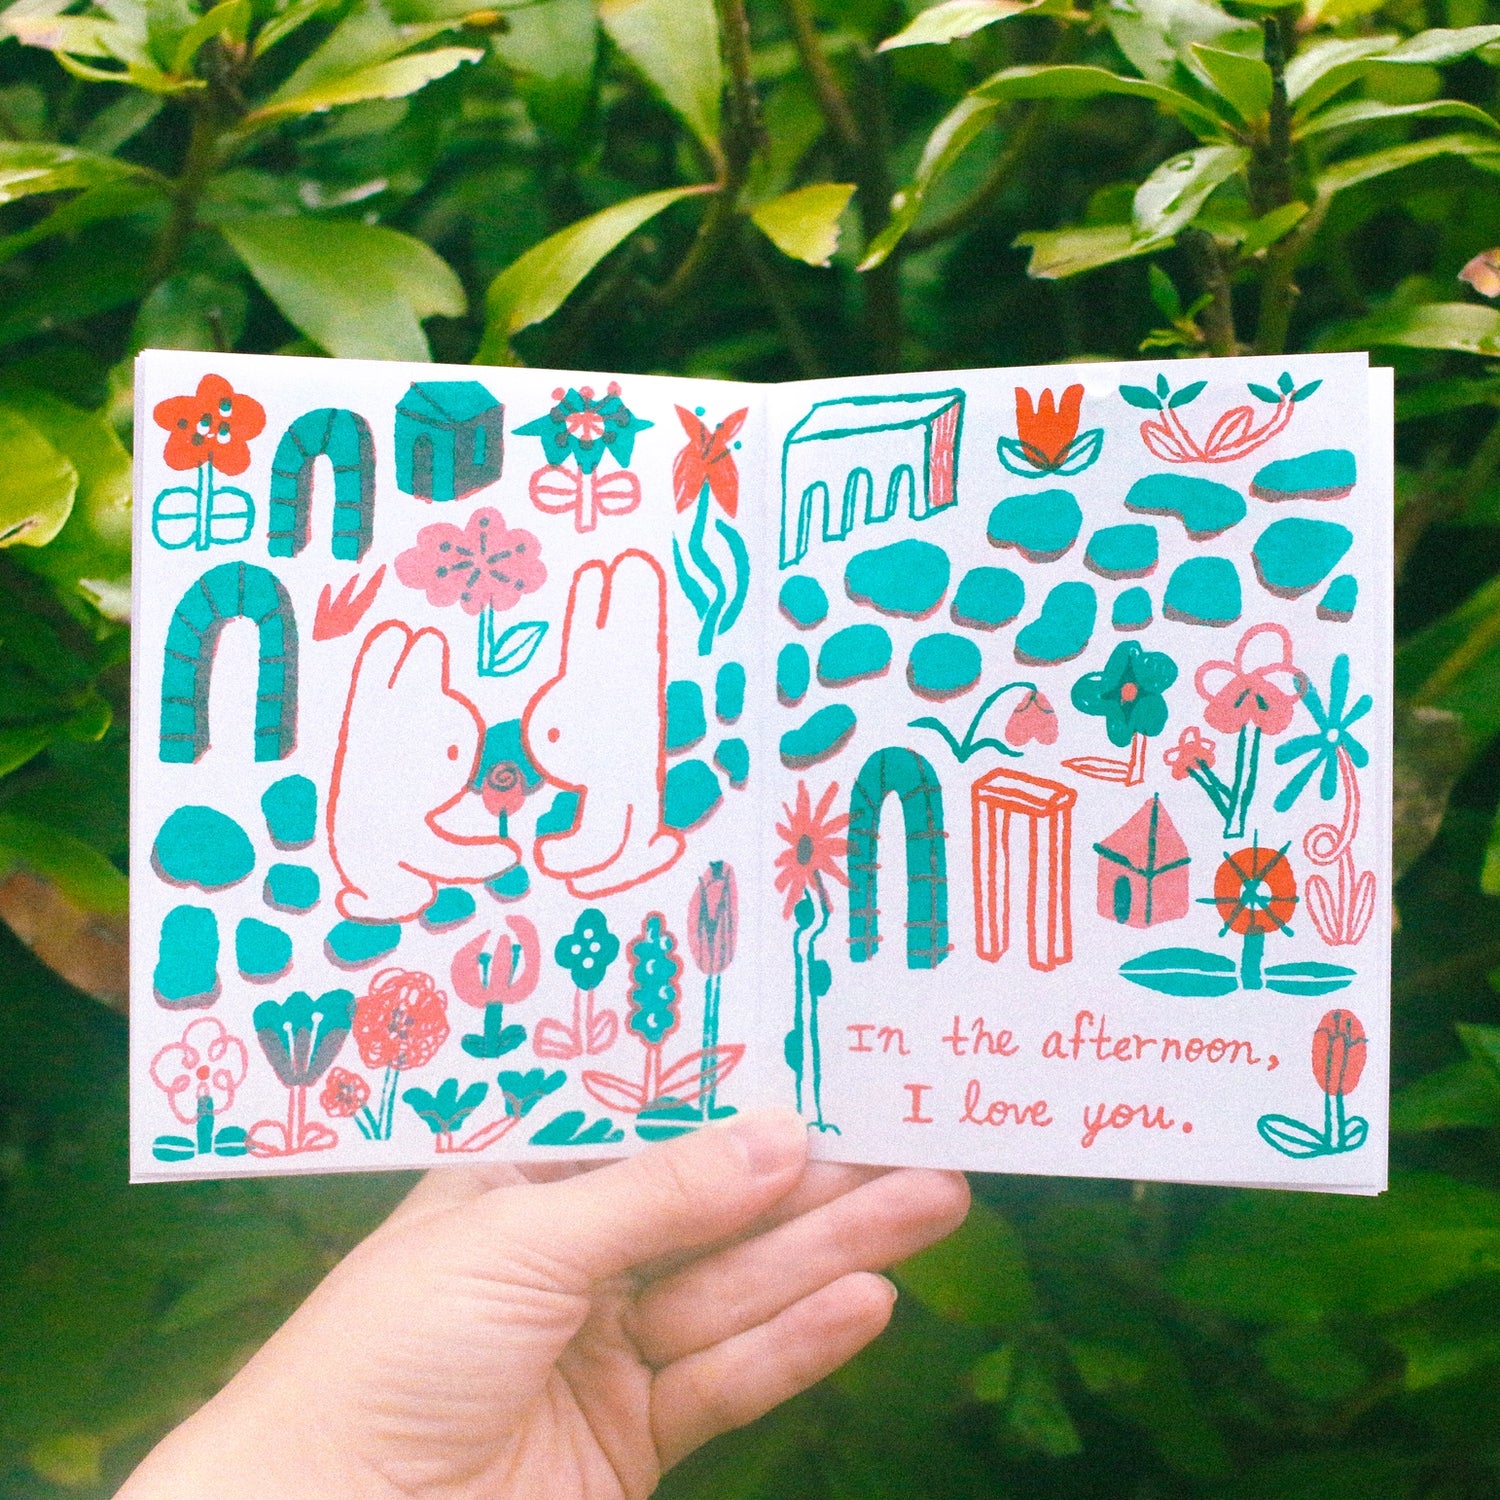 In the afternoon,
I love you.